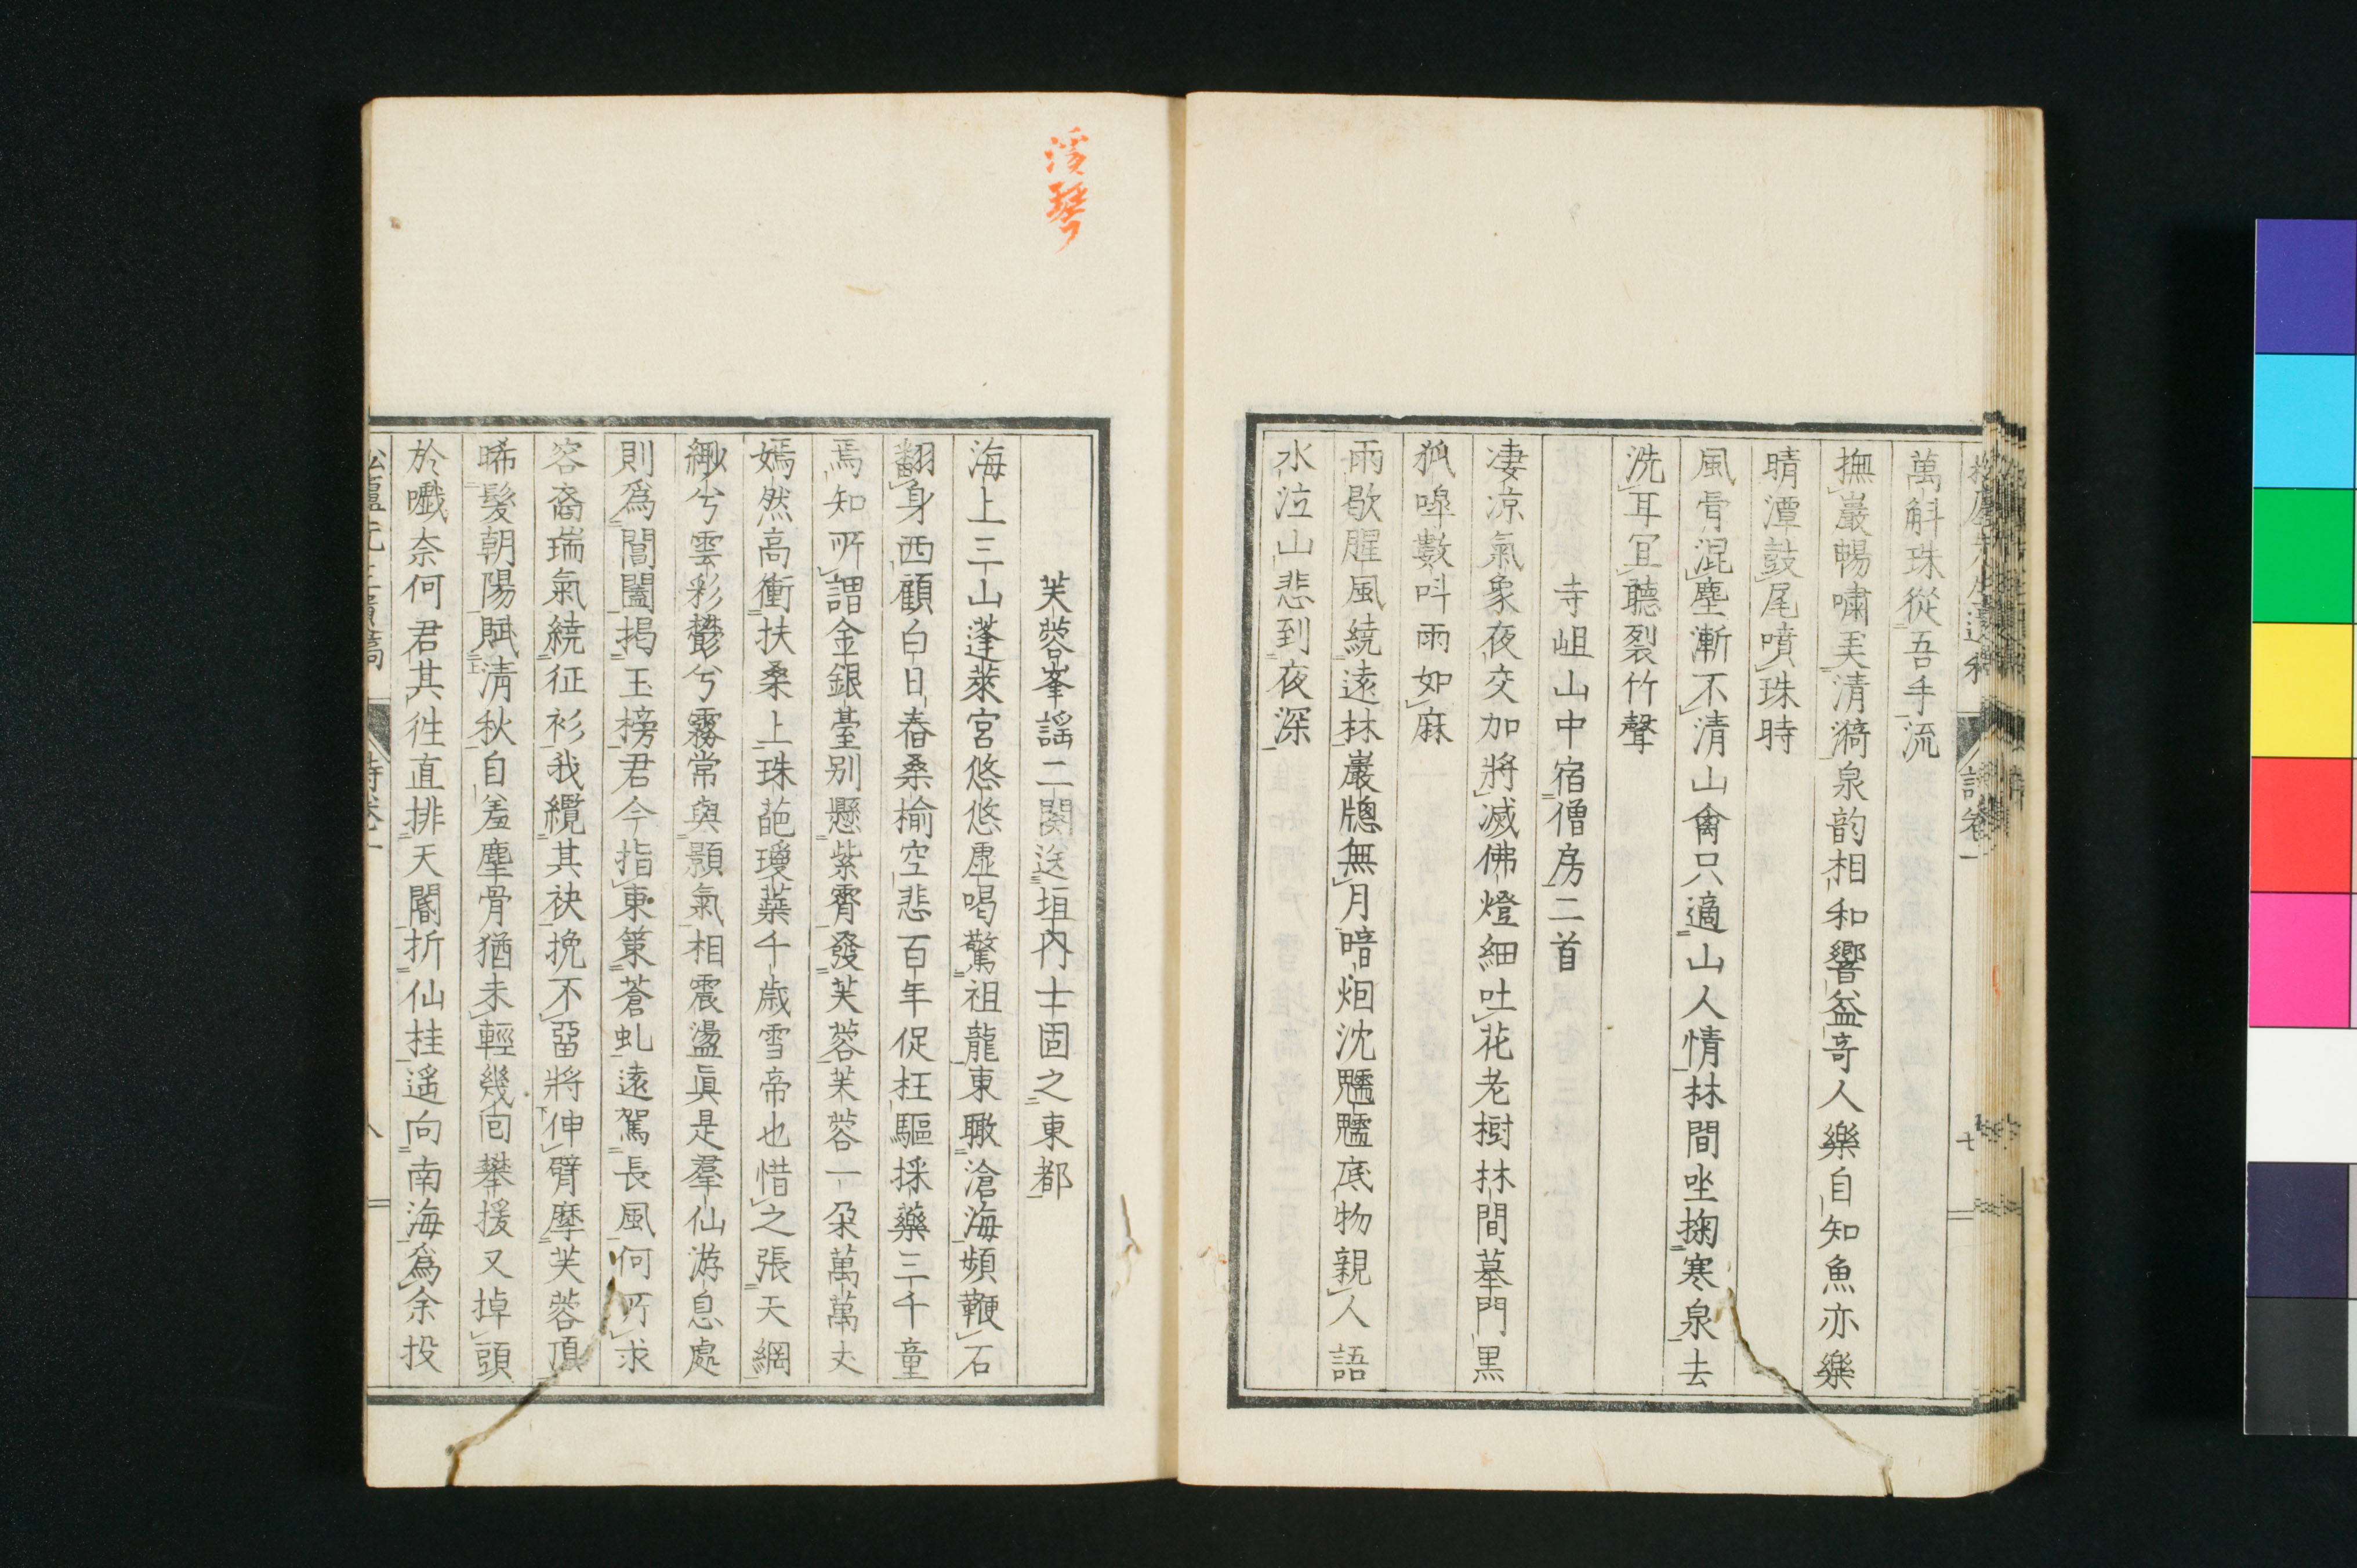 萬斛珠從吾手流
撫巖暢嘯羙清漪泉韵相和響益竒人樂自知魚亦樂
晴潭鼓尾噴珠時
風骨混塵漸不清山禽只適山人情林間坐掬寒泉去
洗耳冝聽裂竹聲
寺岨山中宿僧房二首
凄凉氣象夜交加將滅佛燈細吐花老樹林間墓門黒
狐嘷數呌雨如麻
雨歇腥風繞遠林巖牕無月暗烟沈魑魅底物親人語
水泣山悲到夜深
詩卷一
七
溪琴
芙蓉峯謠二闋送垣內士固之東都
海上三山蓬萊宮悠悠虛喝驚祖龍東瞰滄海頻鞭石
翻身西顧白日舂桑榆空悲百年促枉驅採藥三千童
焉知所謂金銀臺别懸紫霄發芙蓉芙蓉一朶萬萬丈
嫣然高衝扶桑上珠葩瓊蘂千歲雪帝也惜之張天綱
緲兮雲彩鬱兮霧常與顥氣相震盪眞是羣仙游息處
則爲閶闔掲玉榜君今指東策蒼虬遠駕長風何所求
容裔瑞氣繞征衫我纜其袂挽不畱將伸臂摩芙蓉頂
晞髮朝陽賦清秋自羞塵骨猶未輕幾囘攀援又掉頭
於嚱奈何君其徃直排天閽折仙桂遥向南海爲余投
詩卷一
八